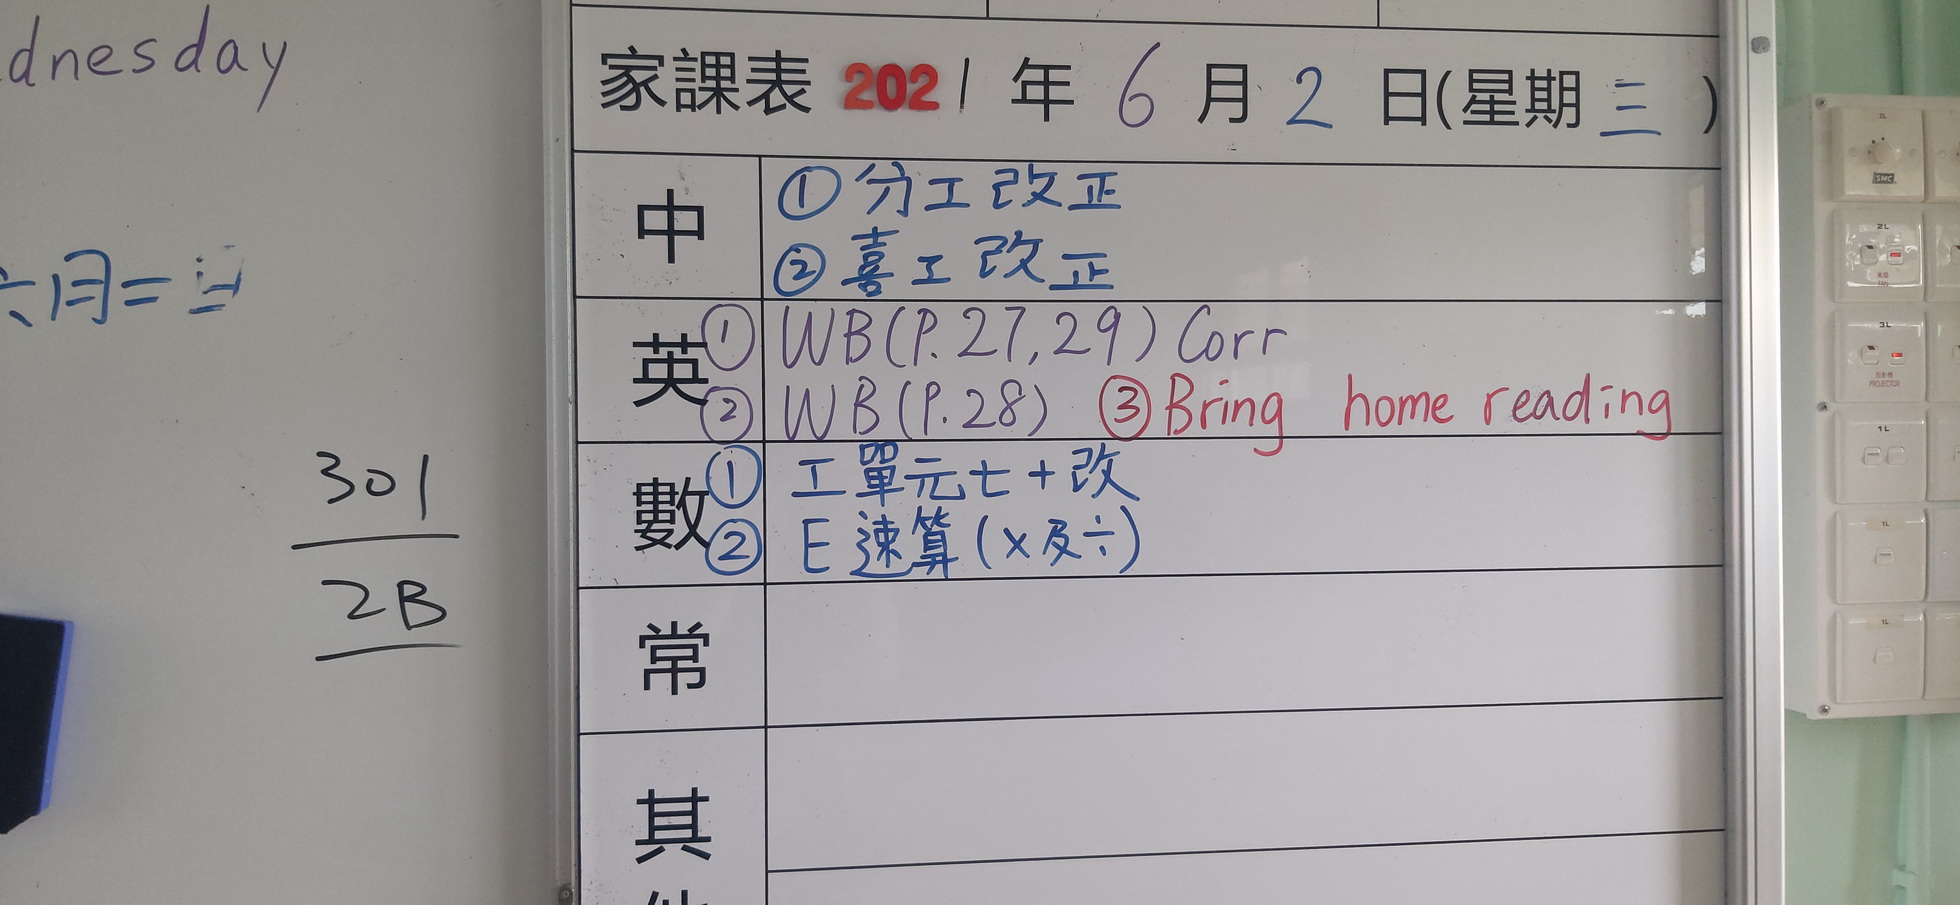 dnesday
六月二日
301
2B
家課表 2021 年 6 月 2 日(星期三)
中
① 分工改正
② 喜工改正
英
① WB(P.27,29) Corr
② WB(P.28) ③ Bring home reading
數
① 工單元七+改
② E速算(×及÷)
常
其
SMC
2L
2L
FAN
3L
投影機
PROJECTOR
1L
1L
1L